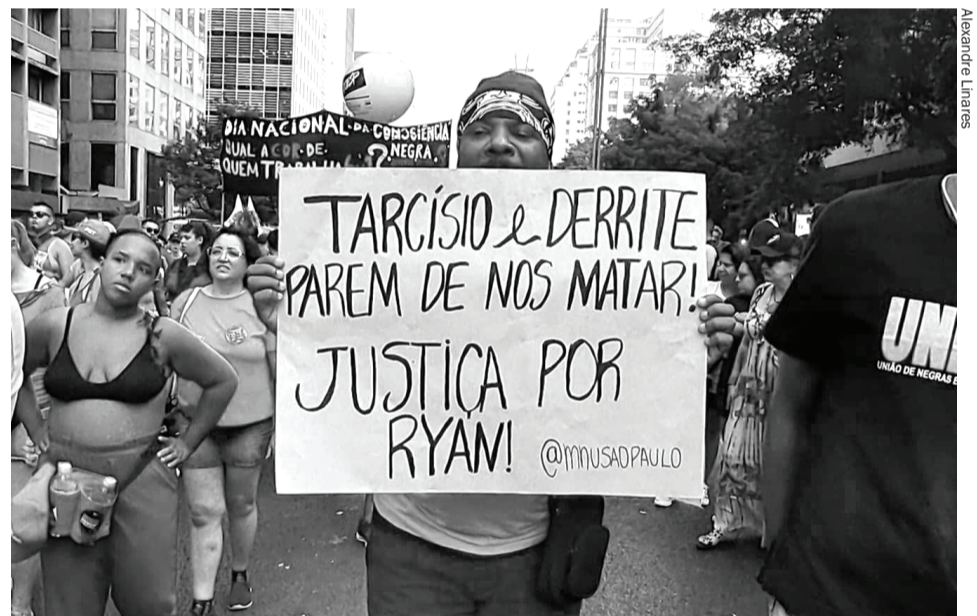 Alexandre Linares
DIA NACIONAL DA CONSCIÊNCIA
QUAL A COR DE NEGRA.
QUEM TRABALHA ?
TARCÍSIO e DERRITE
PAREM DE NOS MATAR!
JUSTIÇA POR
RYAN!
@mnusaopaulo
UN
UNIÃO DE NEGRAS E